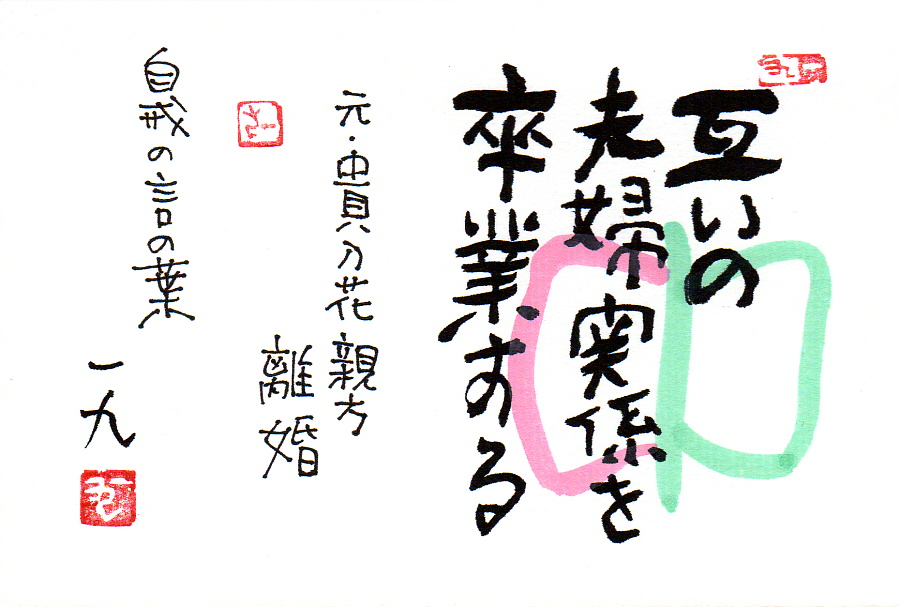 互いの
夫婦関係を
卒業する
元・貴乃花親方
離婚
自戒の言の葉
一九